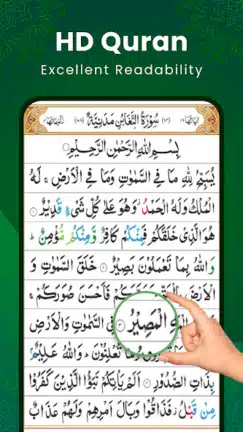 HD Quran
Excellent Readability
سُوْرَةُ التَّغَابُنِ مَدَنِيَّةٌ
بِسْمِ اللّٰهِ الرَّحْمٰنِ الرَّحِيْمِ
يُسَبِّحُ لِلّٰهِ مَا فِى السَّمٰوٰتِ وَمَا فِى الْاَرْضِ ۚ لَهُ
الْمُلْكُ وَلَهُ الْحَمْدُ ۖ وَهُوَ عَلٰى كُلِّ شَىْءٍ قَدِيْرٌ
هُوَ الَّذِىْ خَلَقَكُمْ فَمِنْكُمْ كَافِرٌ وَّمِنْكُمْ مُّؤْمِنٌ ؕ
وَاللّٰهُ بِمَا تَعْمَلُوْنَ بَصِيْرٌ خَلَقَ السَّمٰوٰتِ
وَالْاَرْضَ صَوَّرَكُمْ فَاَحْسَنَ صُوَرَكُمْ ۚ
الْمَصِيْرُ السَّمٰوٰتِ وَالْاَرْضِ
تُعْلِنُوْنَ ؕ وَاللّٰهُ عَلِيْمٌۢ
بِذَاتِ الصُّدُوْرِ اَلَمْ يَاْتِكُمْ نَبَؤُا الَّذِيْنَ كَفَرُوْا
مِنْ قَبْلُ فَذَاقُوْا وَبَالَ اَمْرِهِمْ وَلَهُمْ عَذَابٌ